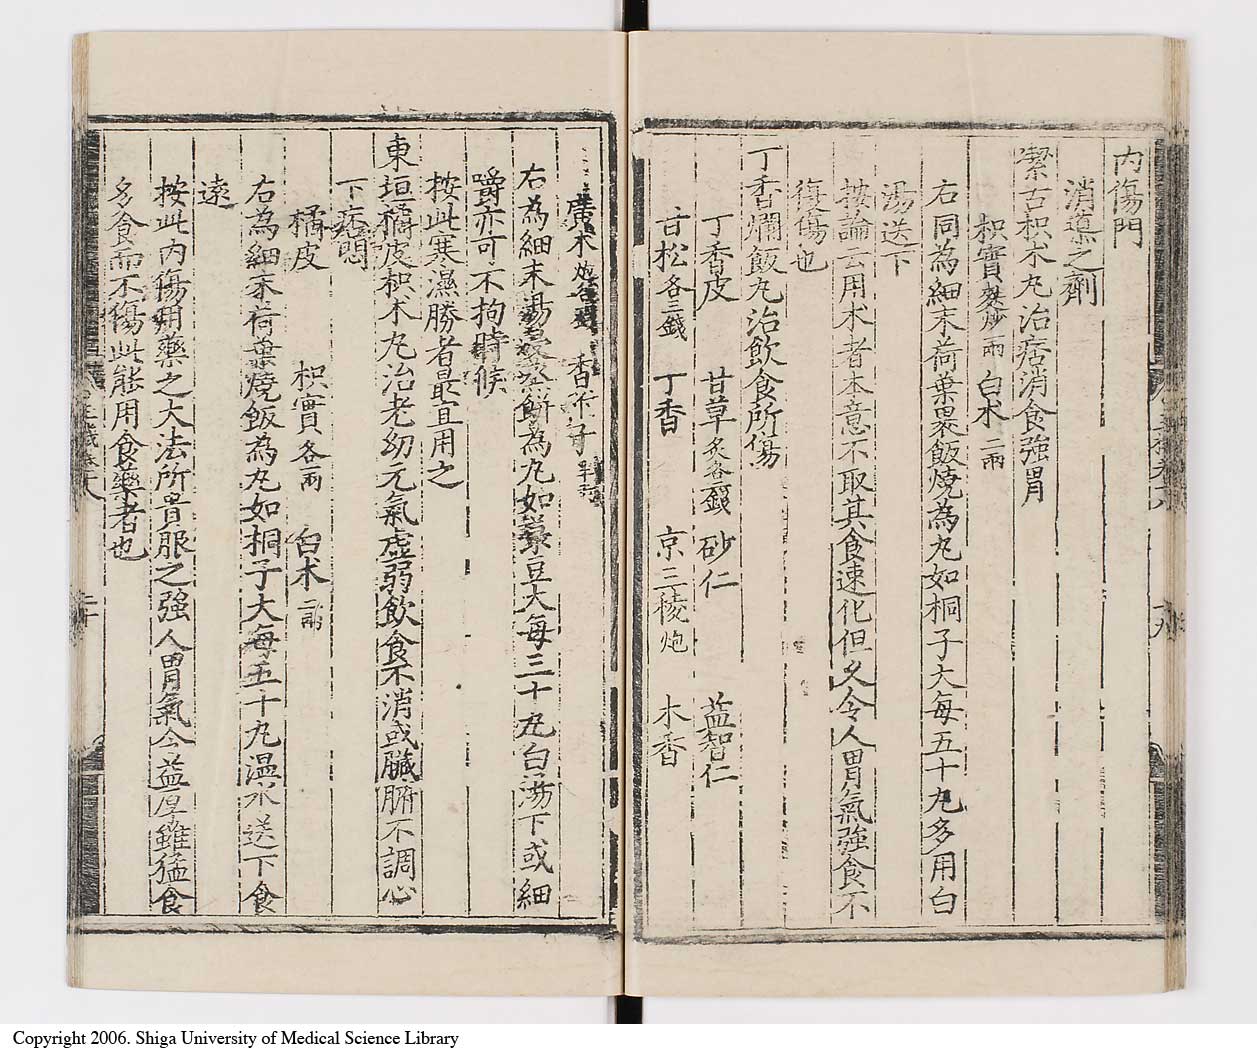 內傷門
消導之劑
潔古枳朮丸治痞消食強胃
枳實麩炒一兩 白朮二兩
右同為細末荷葉裹飯燒為丸如桐子大每五十丸多用白
湯送下
按論云用朮者本意不取其食速化但久令人胃氣強食不
復傷也
丁香爛飯丸治飲食所傷
丁香皮 甘草炙各一錢 砂仁 益智仁
甘松各三錢 丁香 京三稜炮 木香
廣朮炮各一錢 香附子半兩
右為細末湯浸蒸餅為丸如菉豆大每三十丸白湯下或細
嚼亦可不拘時候
按此寒濕勝者最宜用之
東垣橘皮枳朮丸治老幼元氣虛弱飲食不消或臟腑不調心
下痞悶
橘皮 枳實各一兩 白朮二兩
右為細末荷葉燒飯為丸如桐子大每五十丸溫水送下食
遠
按此內傷用藥之大法所貴服之強人胃氣令益厚雖猛食
多食而不傷此能用食藥者也
Copyright 2006. Shiga University of Medical Science Library